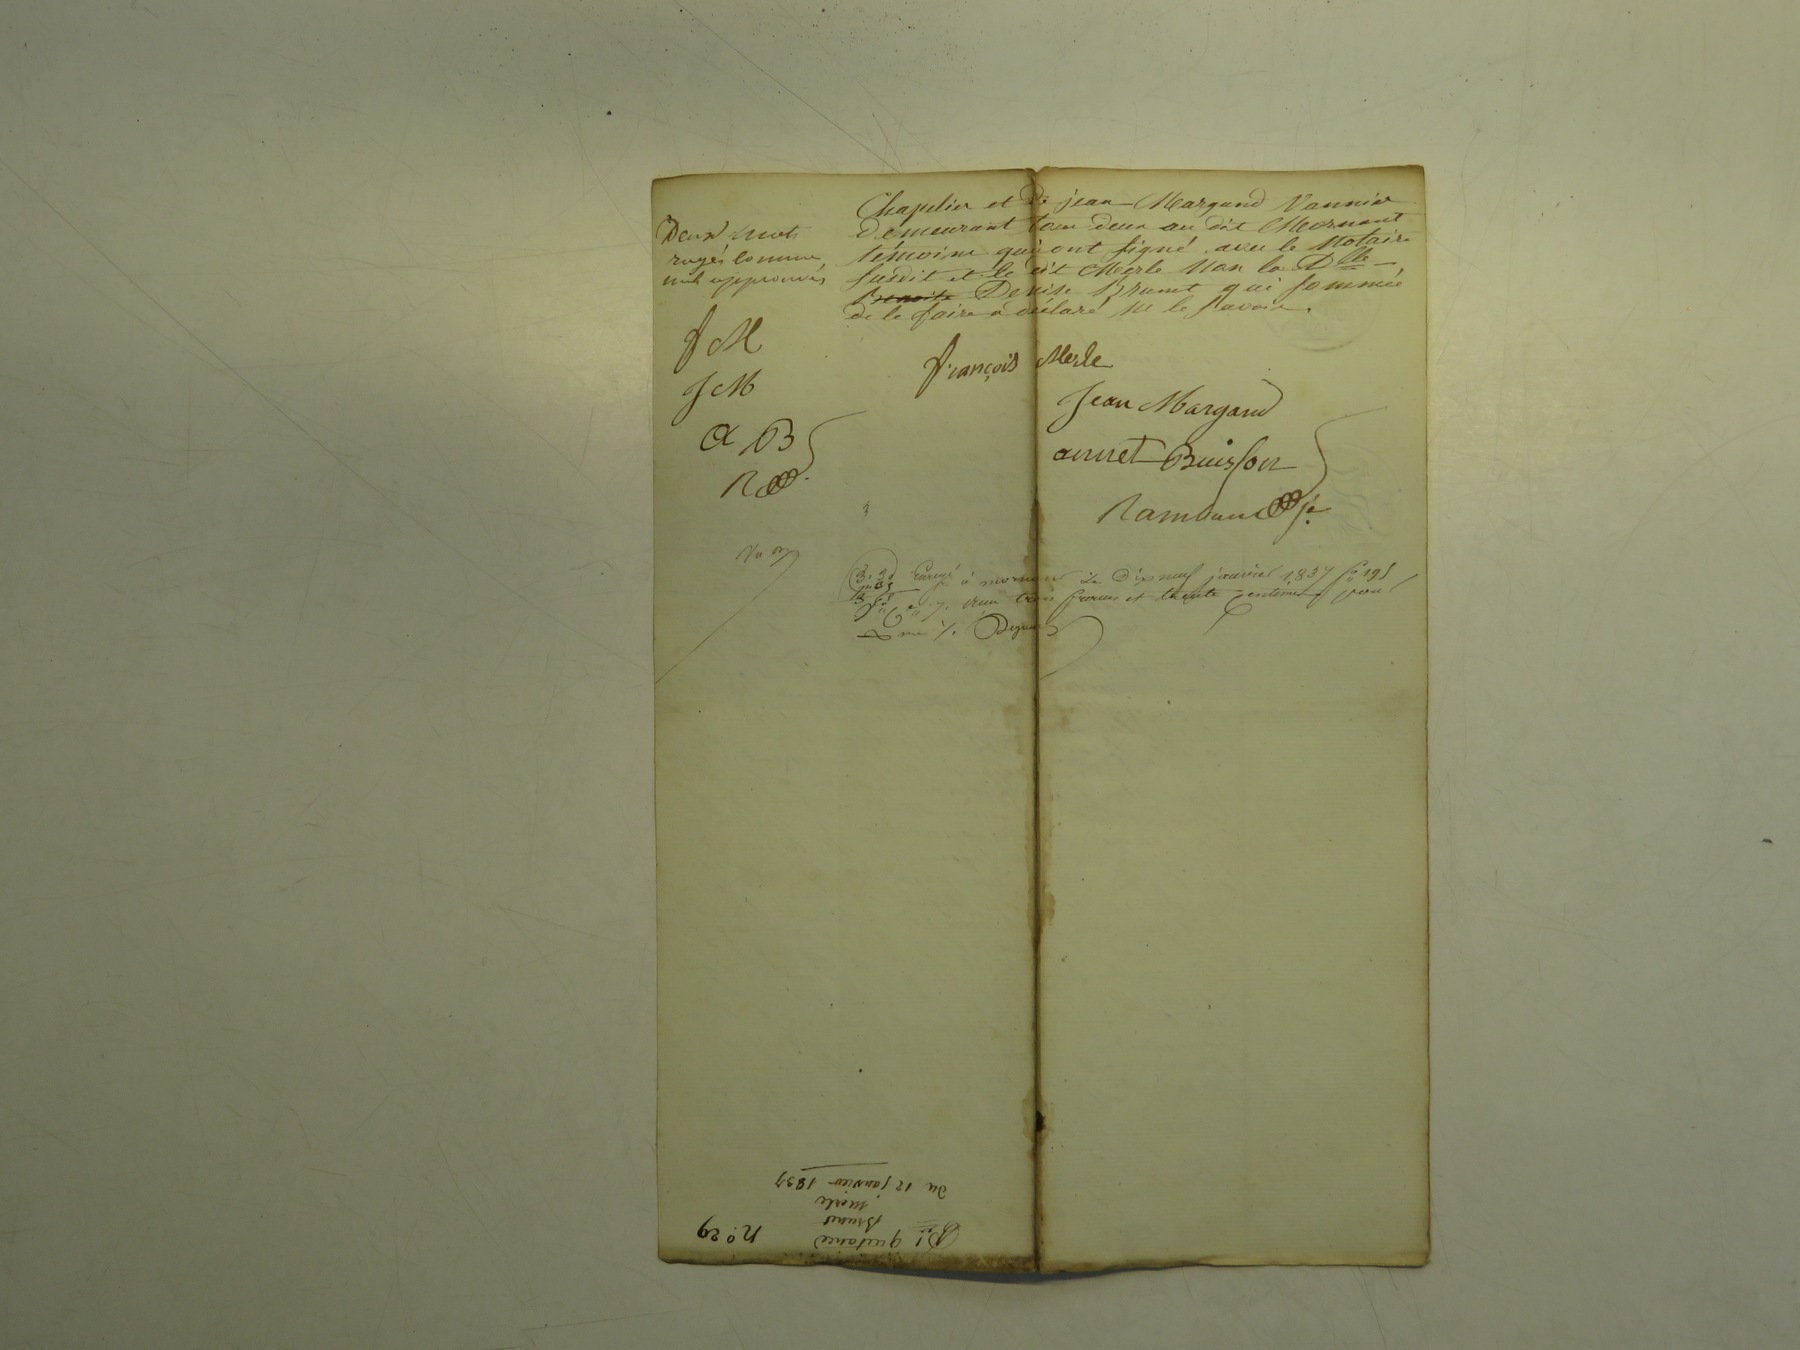 Chapelier et De jean Margand Vannier
Demeurant tous deux au dit Mornant
témoins qui ont signé avec le Notaire
susdit et le dit Merle Non la Dlle
Benoite Denise Brunet qui sommée
de le faire a déclaré ne le savoir.
Deux mots
rayés comme
nuls approuvés
f M
J M
a B
R
françois Merle
Jean Margand
annet Buisson
Rambaud je
Enregé à mornant Le Dix neuf janvier 1837 fo 195
trois francs et trente centimes pour
Bt quitance
Brunet
merle
du 12 janvier 1837
no. 29